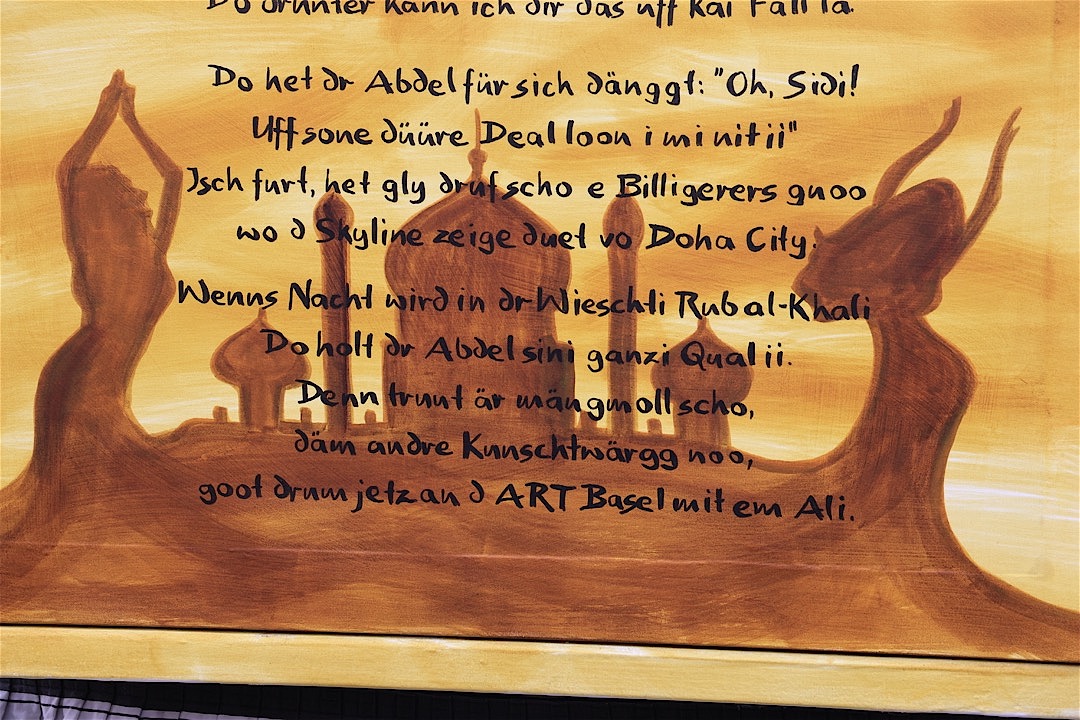 Do drunter kann ich dir das uff kai Fall la.
Do het dr Abdel für sich dänggt: "Oh, Sidi!
Uff sone düüre Deal loon i mi nit ii"
Isch furt, het gly druf scho e Billigerers gnoo
wo d Skyline zeige duet vo Doha City.
Wenns Nacht wird in dr Wieschti Rub al-Khali
Do holt dr Abdel sini ganzi Qual ii.
Denn truut är mängmoll scho,
däm andre Kunnschtwärgg noo,
goot drum jetz an d ART Basel mit em Ali.